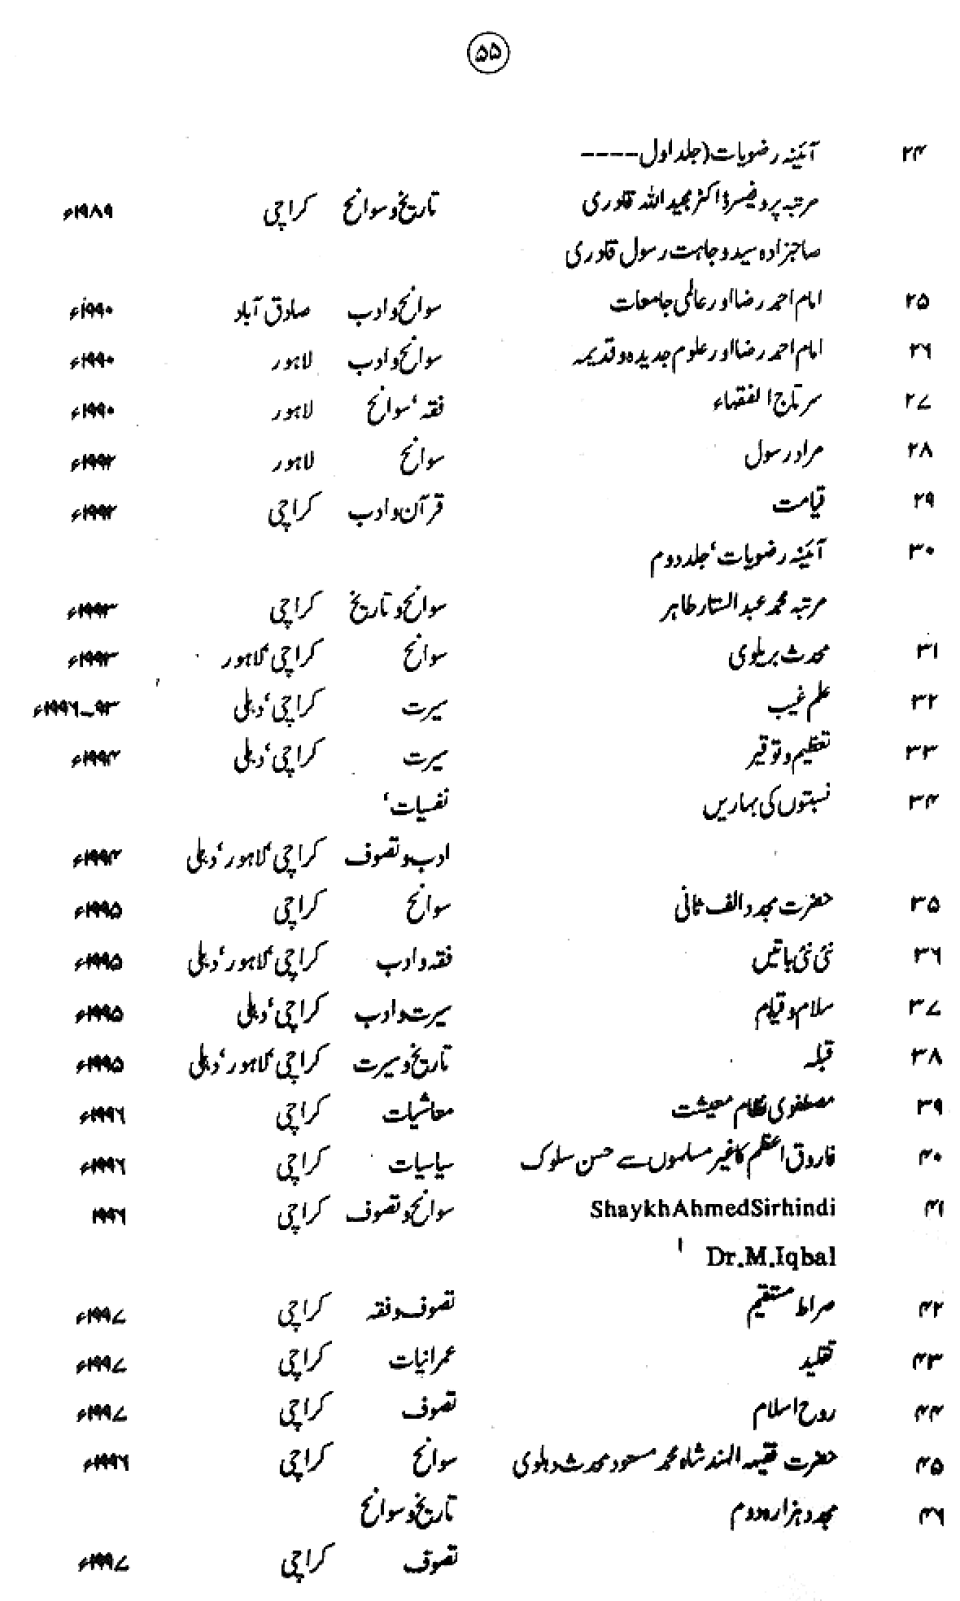 ۵۵
۲۴ آئینہ رضویات (جلد اول ----
مرتبہ پروفیسر ڈاکٹر مجید اللہ قادری تاریخ و سوانح کراچی ۱۹۸۹ء
صاجزادہ سید وجاہت رسول قادری
۲۵ امام احمد رضا اور عالمی جامعات سوانح و ادب صادق آباد ۱۹۹۰ء
۲۶ امام احمد رضا اور علوم جدیدہ و قدیمہ سوانح و ادب لاہور ۱۹۹۰ء
۲۷ سرتاج الفقہاء فقہ‘ سوانح لاہور ۱۹۹۰ء
۲۸ مراد رسول سوانح لاہور ۱۹۹۲ء
۲۹ قیامت قرآن و ادب کراچی ۱۹۹۲ء
۳۰ آئینہ رضویات‘ جلد دوم
مرتبہ محمد عبدالستار طاہر سوانح و تاریخ کراچی ۱۹۹۳ء
۳۱ محدث بریلوی سوانح کراچی‘ لاہور ۱۹۹۳ء
۳۲ علم غیب سیرت کراچی‘ دہلی ۹۳۔۱۹۹۶ء
۳۳ تعظیم و توقیر سیرت کراچی‘ دہلی ۱۹۹۴ء
۳۴ نسبتوں کی بہاریں نفسیات‘
ادب و تصوف کراچی‘ لاہور‘ دہلی ۱۹۹۴ء
۳۵ حضرت مجدد الف ثانی سوانح کراچی ۱۹۹۵ء
۳۶ نئی نئی باتیں فقہ و ادب کراچی‘ لاہور‘ دہلی ۱۹۹۵ء
۳۷ سلام و قیام سیرت و ادب کراچی‘ دہلی ۱۹۹۵ء
۳۸ قبلہ تاریخ و سیرت کراچی‘ لاہور‘ دہلی ۱۹۹۵ء
۳۹ مصطفوی نظام معیشت معاشیات کراچی ۱۹۹۶ء
۴۰ فاروق اعظم کا غیر مسلموں سے حسن سلوک سیاسیات کراچی ۱۹۹۶ء
۴۱ ShaykhAhmedSirhindi سوانح و تصوف کراچی ۱۹۹۶
Dr.M.Iqbal
۴۲ صراط مستقیم تصوف و فقہ کراچی ۱۹۹۷ء
۴۳ تقلید عمرانیات کراچی ۱۹۹۷ء
۴۴ روح اسلام تصوف کراچی ۱۹۹۷ء
۴۵ حضرت فقیہ الہند شاہ محمد مسعود محدث دہلوی سوانح کراچی ۱۹۹۶ء
۴۶ مجدد ہزارہ دوم تاریخ و سوانح
تصوف کراچی ۱۹۹۷ء